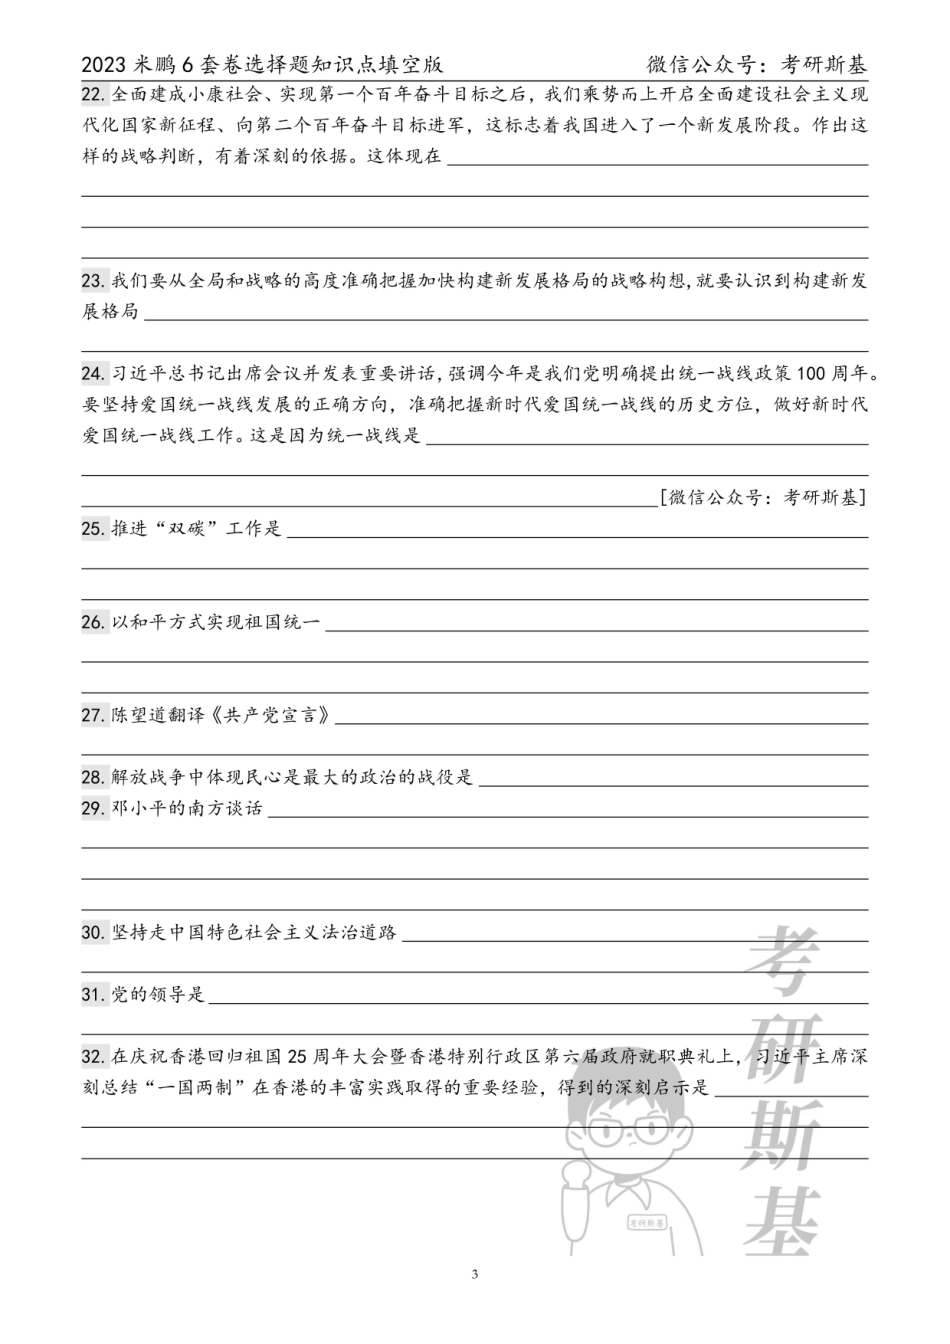 2023 米鹏 6 套卷选择题知识点填空版 微信公众号：考研斯基
22. 全面建成小康社会、实现第一个百年奋斗目标之后，我们乘势而上开启全面建设社会主义现
代化国家新征程、向第二个百年奋斗目标进军，这标志着我国进入了一个新发展阶段。作出这
样的战略判断，有着深刻的依据。这体现在
23. 我们要从全局和战略的高度准确把握加快构建新发展格局的战略构想，就要认识到构建新发
展格局
24. 习近平总书记出席会议并发表重要讲话，强调今年是我们党明确提出统一战线政策 100 周年。
要坚持爱国统一战线发展的正确方向，准确把握新时代爱国统一战线的历史方位，做好新时代
爱国统一战线工作。这是因为统一战线是
[微信公众号：考研斯基]
25. 推进“双碳”工作是
26. 以和平方式实现祖国统一
27. 陈望道翻译《共产党宣言》
28. 解放战争中体现民心是最大的政治的战役是
29. 邓小平的南方谈话
30. 坚持走中国特色社会主义法治道路
31. 党的领导是
32. 在庆祝香港回归祖国 25 周年大会暨香港特别行政区第六届政府就职典礼上，习近平主席深
刻总结“一国两制”在香港的丰富实践取得的重要经验，得到的深刻启示是
考研斯基
考研斯基
3